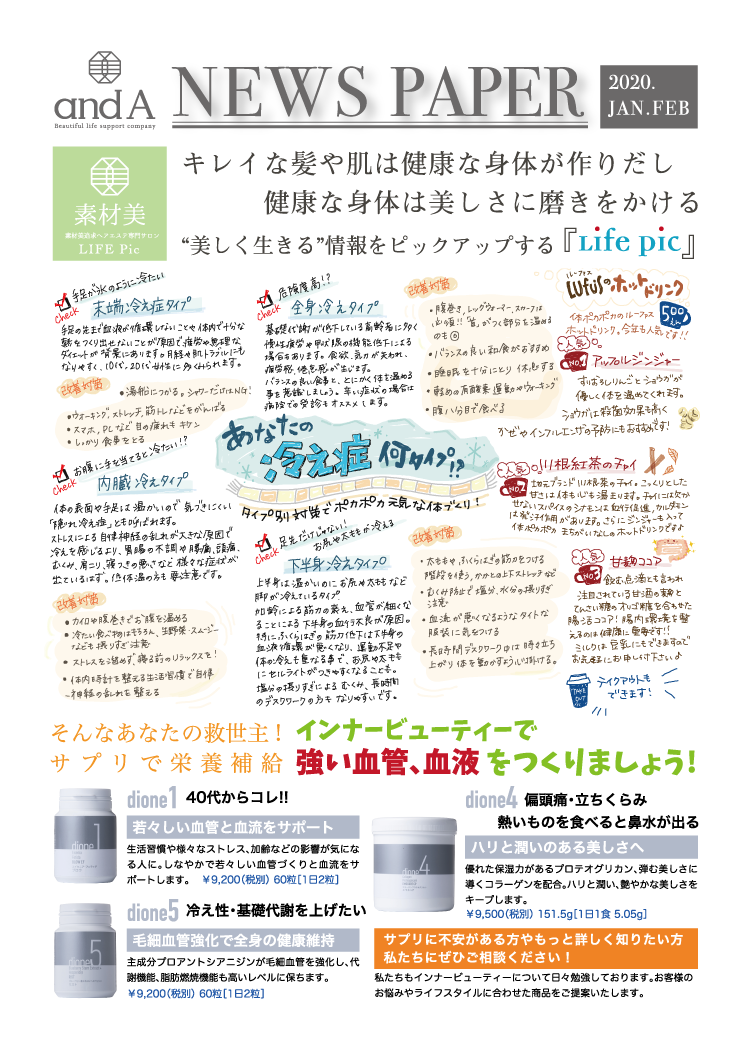 and A
Beautiful life support company
NEWS PAPER
2020.
JAN.FEB
素材美
素材美追求ヘアエステ専門サロン
LIFE Pic
キレイな髪や肌は健康な身体が作りだし
健康な身体は美しさに磨きをかける
“美しく生きる”情報をピックアップする『Life pic』
手足が氷のように冷たい
check
末端冷え症タイプ
手足の先まで血液が循環しないことや体内で十分な
熱をつくり出せないことが原因で疲労や無理な
ダイエットが背景にあります。月経や肌トラブルにも
なりやすく、10代、20代女性に多くみられます。
改善対策
・湯船につかる。シャワーだけはNG!
・ウォーキング、ストレッチ、筋トレなどをがんばる
・スマホ、PCなど目の疲れもキケン
・しっかり食事をとる
危険度高!?
check
全身冷えタイプ
基礎代謝が低下している高齢者に多く
慢性疲労や甲状腺の機能低下による
場合もあります。食欲、気力が失われ、
疲労感、倦怠感が生まれます。
バランスの良い食事と、とにかく体を温める
事を意識しましょう。辛い症状の場合は
病院での受診もオススメします。
改善対策
・腹巻き、レッグウォーマー、スカーフは
必須!!「首」がつく部分を温める
のも◎
・バランスの良い和食がおすすめ
・睡眠を十分にとり休息する
・軽めの有酸素運動やウォーキング
・腹八分目で食べる
ルーフス
Lufuの ホットドリンク
体ポカポカのルーフス
ホットドリンク。今年も人気です!!
500
人気
No.1
アップルジンジャー
すりおろしりんごとショウガが
優しく体を温めてくれます。
ショウガは殺菌効果も高く
かぜやインフルエンザの予防にもおすすめです!
あなたの
冷え症 何タイプ!?
タイプ別対策でポカポカ元気な体づくり!
お腹に手を当てると冷たい!?
check
内臓冷えタイプ
体の表面や手足は温かいので気づきにくい
「隠れ冷え症」とも呼ばれます。
ストレスによる自律神経の乱れが大きな原因で
冷えを感じるより、胃腸の不調や腰痛、頭痛、
むくみ、肩こり、寝つきの悪さなど様々な症状が
出ているはず。低体温の方も要注意です。
改善対策
・カイロや腹巻きでお腹を温める
・冷たい食べ物はもちろん、生野菜・スムージー
なども摂りすぎ注意
・ストレスを溜めず、寝る前のリラックスを!
・体内時計を整える生活習慣で自律
神経の乱れを整える
足先だけじゃない!
お尻や太ももが冷える
check
下半身冷えタイプ
上半身は温かいのにお尻や太ももなど
脚が冷えているタイプ。
加齢による筋力の衰え、血管が細くな
ることによる下半身の血行不良が原因。
特にふくらはぎの筋力低下は下半身の
血液循環が悪くなり、運動不足や
体の冷えも重なる事で、お尻や太もも
にセルライトがつきやすくなることも。
塩分の摂りすぎによるむくみ、長時間
のデスクワークの方もなりやすいです。
改善対策
・太ももやふくらはぎの筋力をつける
階段を使う、かかとの上下ストレッチなど
・むくみ防止で塩分、水分の摂りすぎ
注意
・血流が悪くなるようなタイトな
服装に気をつける
・長時間デスクワーク中は時々立ち
上がり体を動かすよう心掛ける。
人気
No.2
川根紅茶のチャイ
地元ブランド川根茶のチャイ。こっくりとした
甘さは体も心も温まります。チャイには欠か
せないスパイスのシナモンは血行促進、カルダモン
は発汗作用があります。さらにジンジャーも入って
体ポカポカまちがいなしのホットドリンクですよ
人気
No.3
甘麹ココア
飲む点滴とも言われ
注目されている甘酒の麹と
てんさい糖のオリゴ糖を合わせた
腸活ココア!腸内環境を整
えるのは健康に重要です!!
ミルクは豆乳にもできますので
お気軽にお申し付け下さいね
TAKE OUT
テイクアウトも
できます!
そんなあなたの救世主!
サプリで栄養補給
インナービューティーで
強い血管、血液をつくりましょう!
dione1 40代からコレ!!
若々しい血管と血流をサポート
生活習慣や様々なストレス、加齢などの影響が気にな
る人に。しなやかで若々しい血管づくりと血流をサ
ポートします。 ￥9,200(税別) 60粒[1日2粒]
dione5 冷え性・基礎代謝を上げたい
毛細血管強化で全身の健康維持
主成分プロアントシアニジンが毛細血管を強化し、代
謝機能、脂肪燃焼機能も高いレベルに保ちます。
￥9,200(税別) 60粒[1日2粒]
dione4 偏頭痛・立ちくらみ
熱いものを食べると鼻水が出る
ハリと潤いのある美しさへ
優れた保湿力があるプロテオグリカン、弾む美しさに
導くコラーゲンを配合。ハリと潤い、艶やかな美しさを
キープします。
￥9,500(税別) 151.5g[1日1食 5.05g]
サプリに不安がある方やもっと詳しく知りたい方
私たちにぜひご相談ください！
私たちもインナービューティーについて日々勉強しております。お客様の
お悩みやライフスタイルに合わせた商品をご提案いたします。